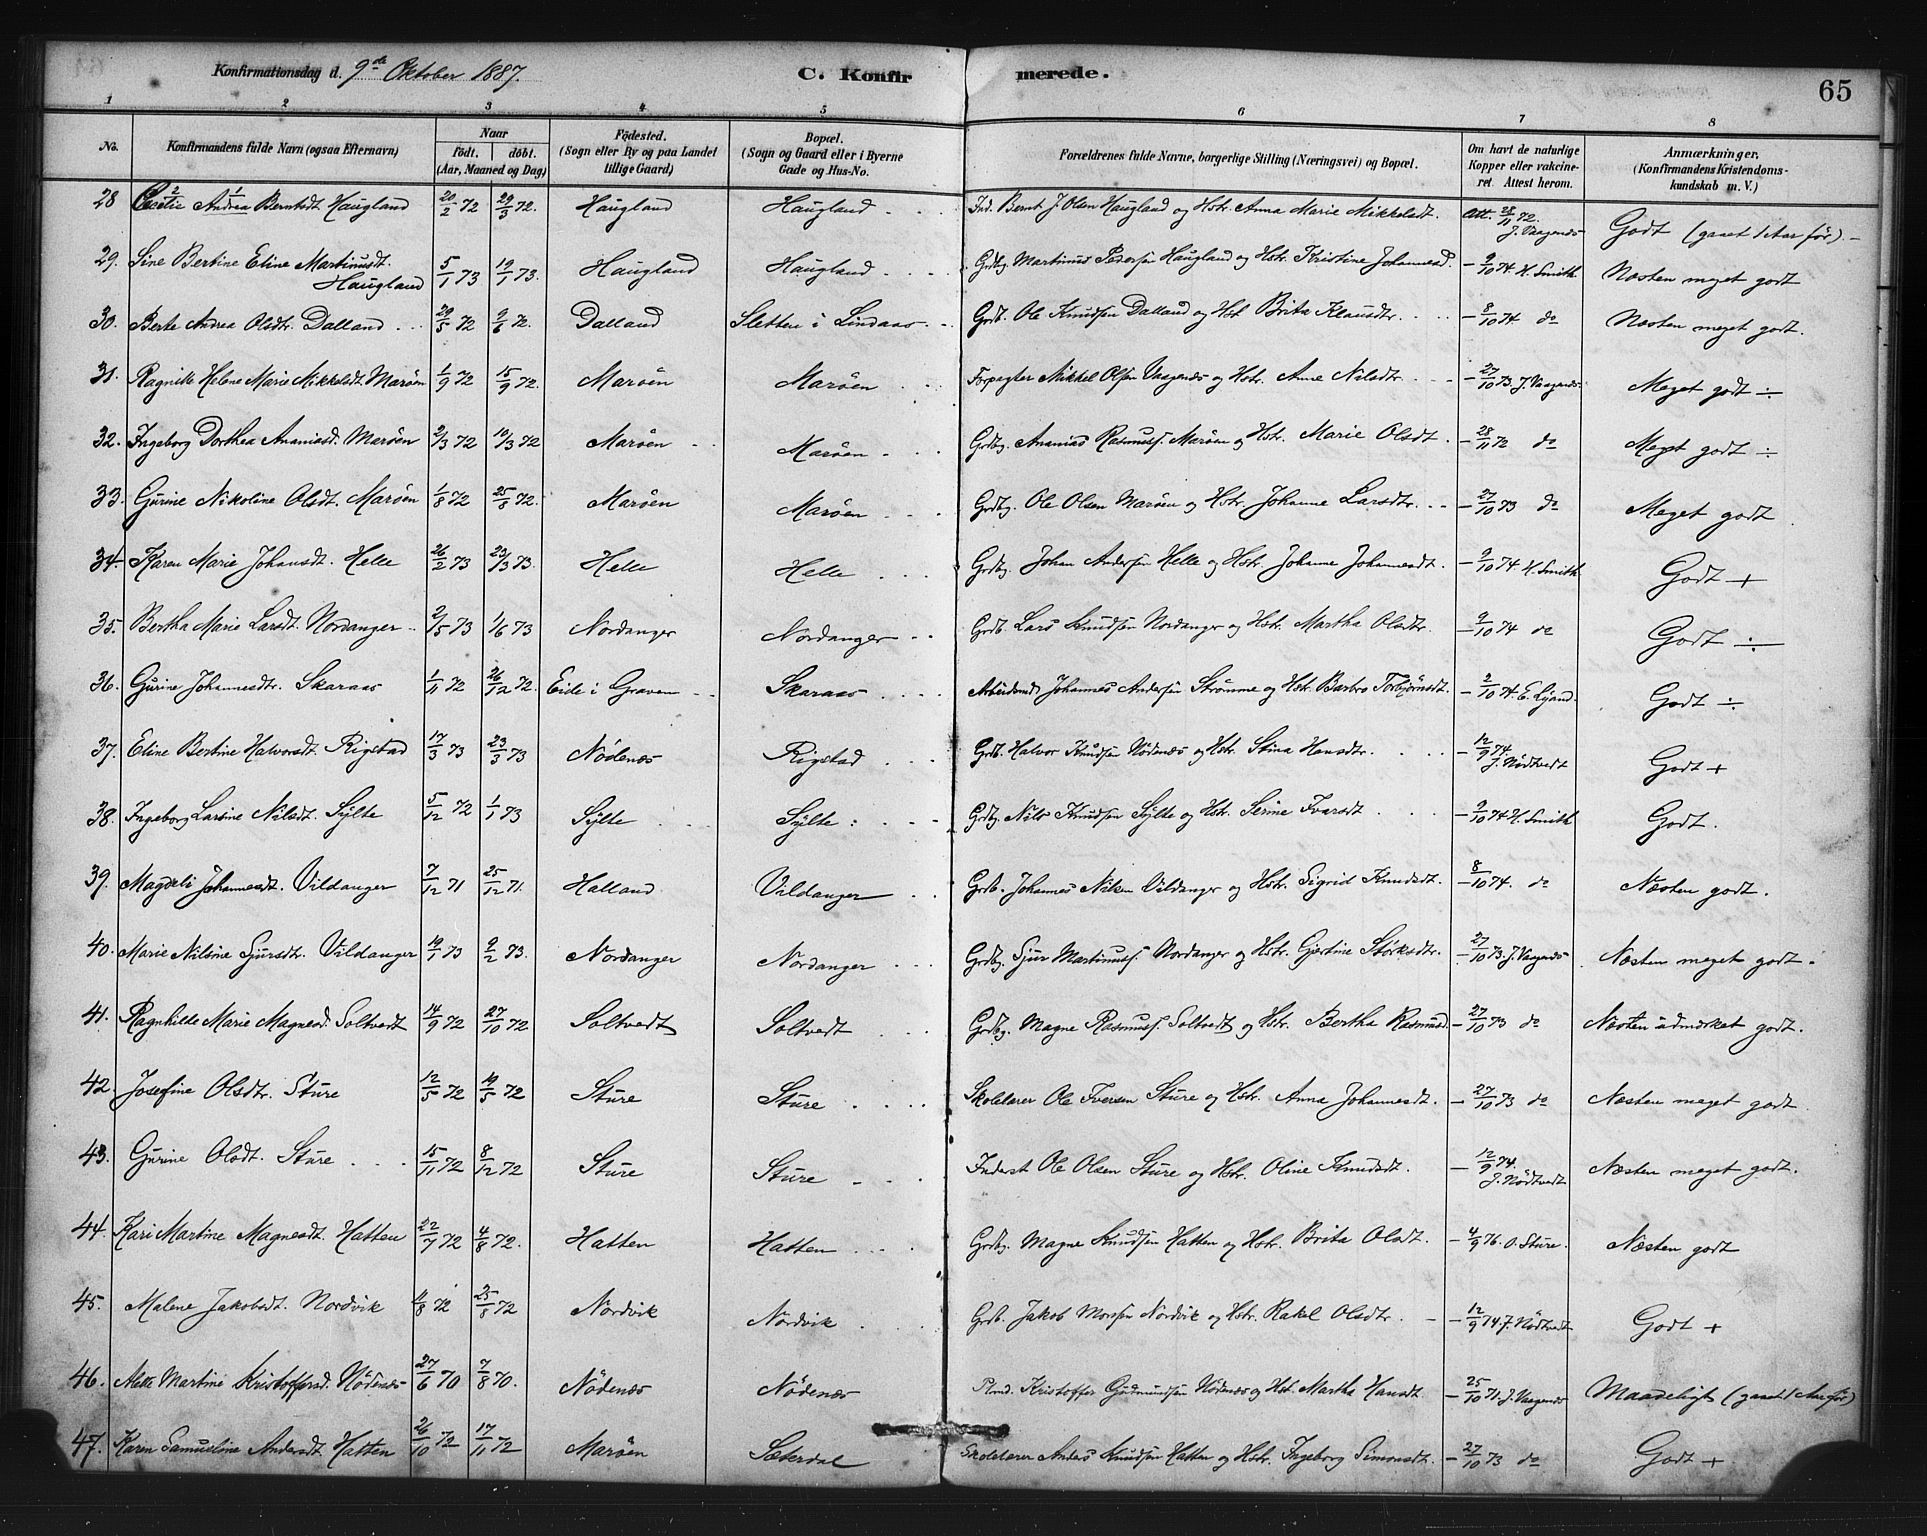 Konfirmationsdag d. 9de Oktober 1887.
C. Konfirmerede.
65
1 2 3 4 5 6 7 8
No.
Konfirmandens fulde Navn (ogsaa Efternavn)
Naar
født. døbt.
(Aar, Maaned og Dag)
Fødested.
(Sogn eller By og paa Landet
tillige Gaard)
Bopæl.
(Sogn og Gaard eller i Byerne
Gade og Hus-No.
Forældrenes fulde Navne, borgerlige Stilling (Næringsvei) og Bopæl.
Om havt de naturlige
Kopper eller vakcine-
ret. Attest herom.
Anmærkninger.
(Konfirmandens Kristendoms-
kundskab m. V.)
28 Andrea Berntsdt. Haugland 20/2 72 29/3 72. Haugland Haugland Ind. Bernt J. Olsen Haugland og Hstr. Anna Marie Mikkelsdt. Att. 28/11 72. J. Vaagenes Godt (gaaet 1 Aar før)
29. Sine Bertine Eline Martinusdt.
Haugland 5/1 73 19/1 73. Haugland Haugland Grdbg. Martinus Pedersen Haugland og Hstr. Kristine Johannesd. - 9/10 74 H. Smith Næsten meget godt
30. Berte Andrea Olsdtr. Dalland 29/5 72 9/6 72. Dalland Sletten i Lindaas Grdb. Ole Knudsen Dalland og Hst. Brita Klausdtr. - 8/10 74 do Næsten meget godt.
31. Ragnille Helene Marie Mikkelsdt. Marøen 1/9 72 15/9 72. Marøen Marøen Forpagter Mikkel Olsen Vaagenes og Hstr. Anne Nilsdtr. - 27/10 73. J. Vaagenes. Meget godt ÷
32. Ingeborg Dorthea Ananiasd. Marøen 2/3 72 10/3 72 Marøen Marøen Grdbg. Ananias Rasmuss. Marøen og Hstr. Marie Olsdt. - 28/11 72 do Meget godt ÷
33. Gurine Nikoline Olsdt. Marøen 1/8 72 25/8 72. Marøen Marøen Grdbg. Ole Olsen Marøen og Hstr. Johanne Larsdtr. - 27/10 73 do Meget godt
34 Karen Marie Johansdt. Helle 26/2 73 23/3 73. Helle Helle Grdbg. Johan Andersen Helle og Hstr. Johanne Johannesdt. - 9/10 74. H. Smith Godt +
35. Bertha Marie Larsdt. Nordanger 2/5 73 1/6 73 Nordanger Nordanger Grdb. Lars Knudsen Nordanger og Hstr. Martha Olsdtr. - 9/10 74 do Godt ÷
36. Gurine Johannesdtr. Skaraas 1/11 72 26/12 72. Eide i Graven Skaraas Arbeidsmd. Johannes Andersen Strømme og Hstr. Barbro Torbjørnsdt. - 2/10 74. Godt ÷
37. Eline Bertine Halvorsdt. Rigstad 17/3 73 23/3 73 Nødenæs Rigstad Grdb. Halvor Knudsen Nødenæs og Hstr. Stina Hansdtr. - 12/9 74. J. Nødtvedt Godt +
38. Ingeborg Larsine Nilsdt. Sylte 5/12 72 1/1 73 Sylte Sylte Grdbg. Nils Knudsen Sylte og Hstr. Serine Ivarsdt. - 9/10 74 H. Smith Godt.
39. Magdeli Johannesdt. Vildanger 7/12 71 25/12 71. Halland Vildanger Grdb. Johannes Nilsen Vildanger og Hstr. Sigrid Knudsdt. - 8/10 74. do Næsten godt.
40. Marie Nilsine Sjursdtr. Vildanger 19/1 73 9/2 73. Nordanger Nordanger Grdbg. Sjur Martinuss. Nordanger og Hstr. Gjertine Størksdtr. - 27/10 73. J. Vaagenes Næsten meget godt.
41. Ragnhilde Marie Magnesd. Soltvedt 14/9 72 27/10 72 Soltvedt Soltvedt Grdbg. Magne Rasmuss. Soltvedt og Hstr. Bertha Rasmusd. - 27/10 73 do Næsten udmærket godt.
42. Josefine Olsdtr. Sture 12/5 72 19/5 72 Sture Sture Skolelærer Ole Iversen Sture og Hstr. Anna Johannesdt. - 27/10 73 do Næsten meget godt
43. Gurine Olsdt. Sture 15/11 72 8/12 72 Sture Sture Inderst Ole Olsen Sture og Hstr. Oline Knudsdt. - 12/9 74. J. Nødtvedt Næsten meget godt.
44. Kari Martine Magnesdt. Hatten 22/7 72 4/8 72. Hatten Hatten Grdbg. Magne Knudsen Hatten og Hstr. Brita Olsdt. - 4/9 76. O. Sture. Næsten godt
45. Malene Jakobsdt. Nordvik 11/8 72 25/8 72 Nordvik Nordvik Grdb. Jakob Monsen Nordvik og Hstr. Rakel Olsdtr. - 12/9 74. J. Nødtvedt Godt +
46. Mette Martine Kristoffersd. Nødenæs 27/6 70 7/8 70. Nødenæs Nødenæs Plmd. Kristoffer Gudmundsen Nødenæs og Hst. Martha Hansdt. - 25/10 71. J. Vaagenes Maadeligt (gaaet 1 Aar før)
47. Karen Samueline Andersdt. Hatten 26/10 72 17/11 72 Marøen Sæterdal Skolelærer Anders Knudsen Hatten og Hstr. Ingeborg Simonsdt. - 27/10 73 do Godt +